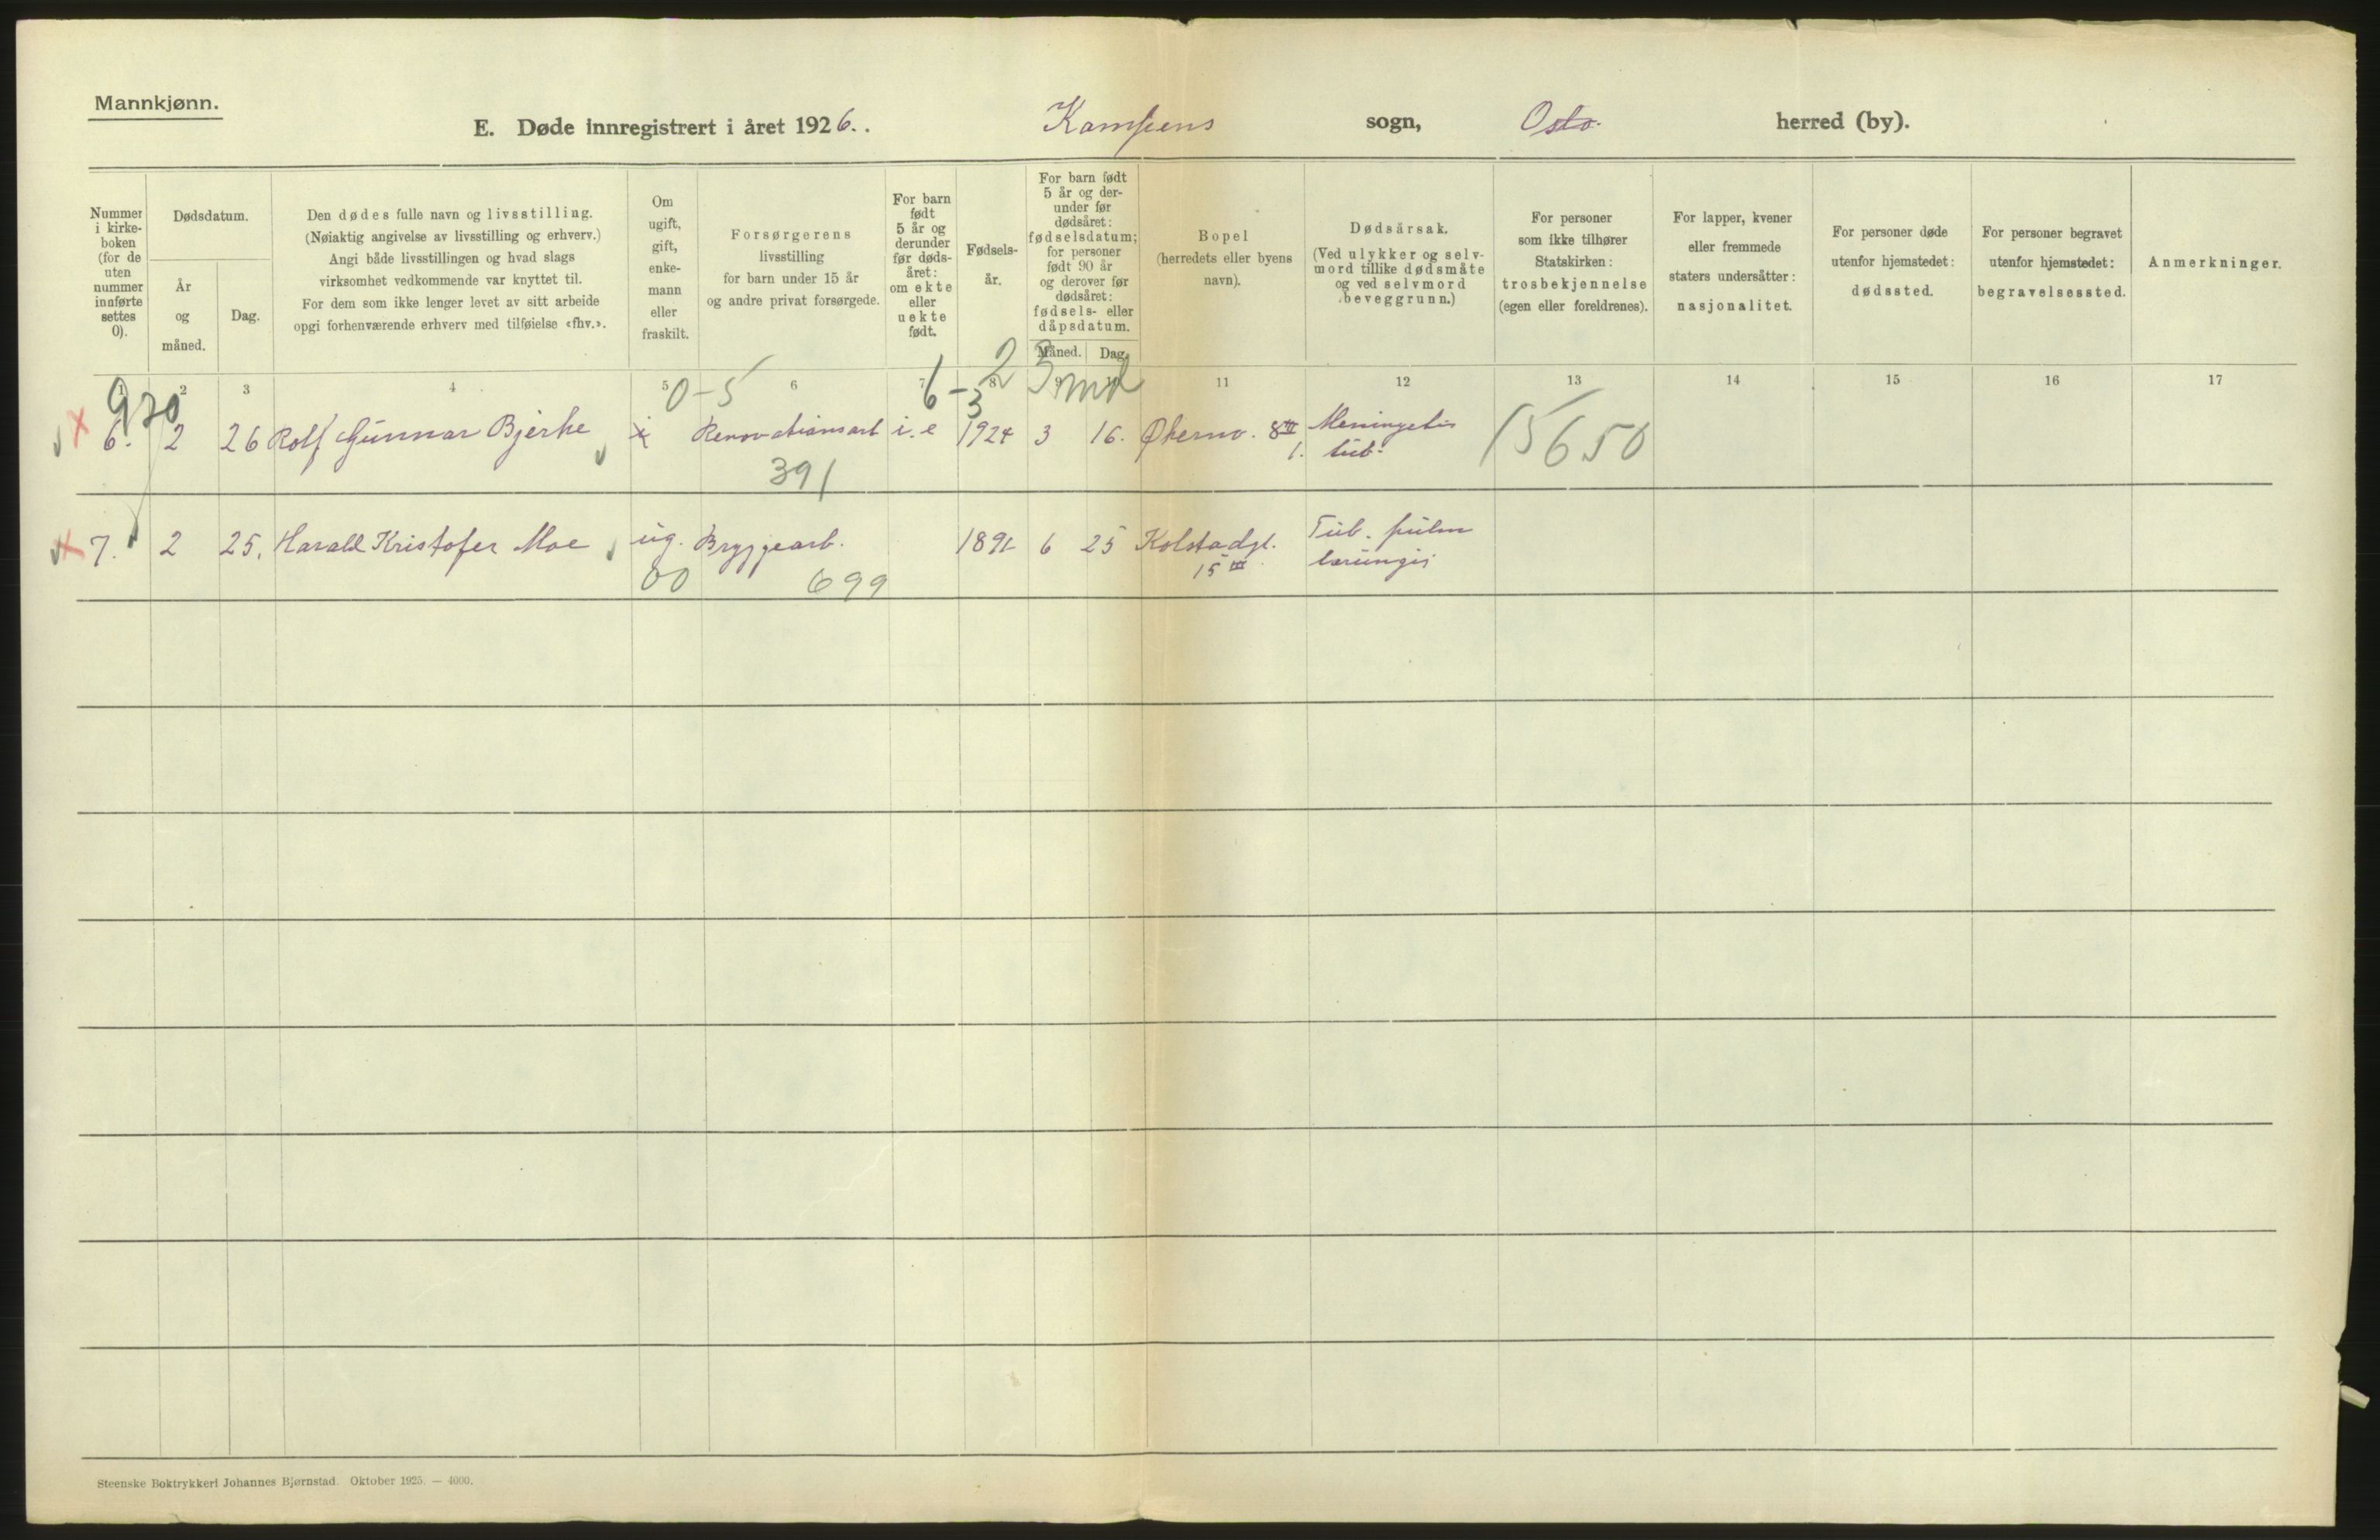 Mannkjønn.
E. Døde innregistrert i året 1926. . Kampens sogn, Oslo. herred (by).
Nummer
i kirke-
boken
(for de
uten
nummer
innførte
settes
0).
Dødsdatum.
År
og
måned.
Dag.
Den dødes fulle navn og livsstilling.
(Nøiaktig angivelse av livsstilling og erhverv.)
Angi både livsstillingen og hvad slags
virksomhet vedkommende var knyttet til.
For dem som ikke lenger levet av sitt arbeide
opgi forhenværende erhverv med tilføielse «fhv.».
Om
ugift,
gift,
enke-
mann
eller
fraskilt.
Forsørgerens
livsstilling
for barn under 15 år
og andre privat forsørgede.
For barn
født
5 år og
derunder
før døds-
året:
om ekte
eller
uekte
født.
Fødsels-
år.
For barn født
5 år og der-
under før
dødsåret:
fødselsdatum;
for personer
født 90 år
og derover før
dødsåret:
fødsels- eller
dåpsdatum.
Måned. Dag.
Bopel
(herredets eller byens
navn).
Dødsårsak.
(Ved ulykker og selv-
mord tillike dødsmåte
og ved selvmord
beveggrunn.)
For personer
som ikke tilhører
Statskirken:
trosbekjennelse
(egen eller foreldrenes).
For lapper, kvener
eller fremmede
staters undersåtter:
nasjonalitet.
For personer døde
utenfor hjemstedet:
dødssted.
For personer begravet
utenfor hjemstedet:
begravelsessted.
Anmerkninger.
1 2 3 4 5 6 7 8 9 10 11 12 13 14 15 16 17
930 0-5 6-3 2 3 md
6. 2 26 Rolf Gunnar Bjerke Renovationsarb i. e 1924 3 16. Økernv. 8 III Meningetis
1. tub. 15650
391
7. 2 25. Harald Kristofer Moe ug. Bryggearb. 1891 6 25 Kolstadgt. Tub. pulm
15 III laryngis
00 699
Steenske Boktrykkeri Johannes Bjørnstad. Oktober 1925. — 4000.